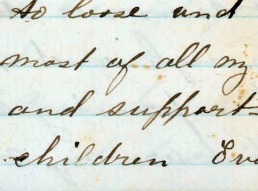 to loose and
most of all my
and support-
children Eve